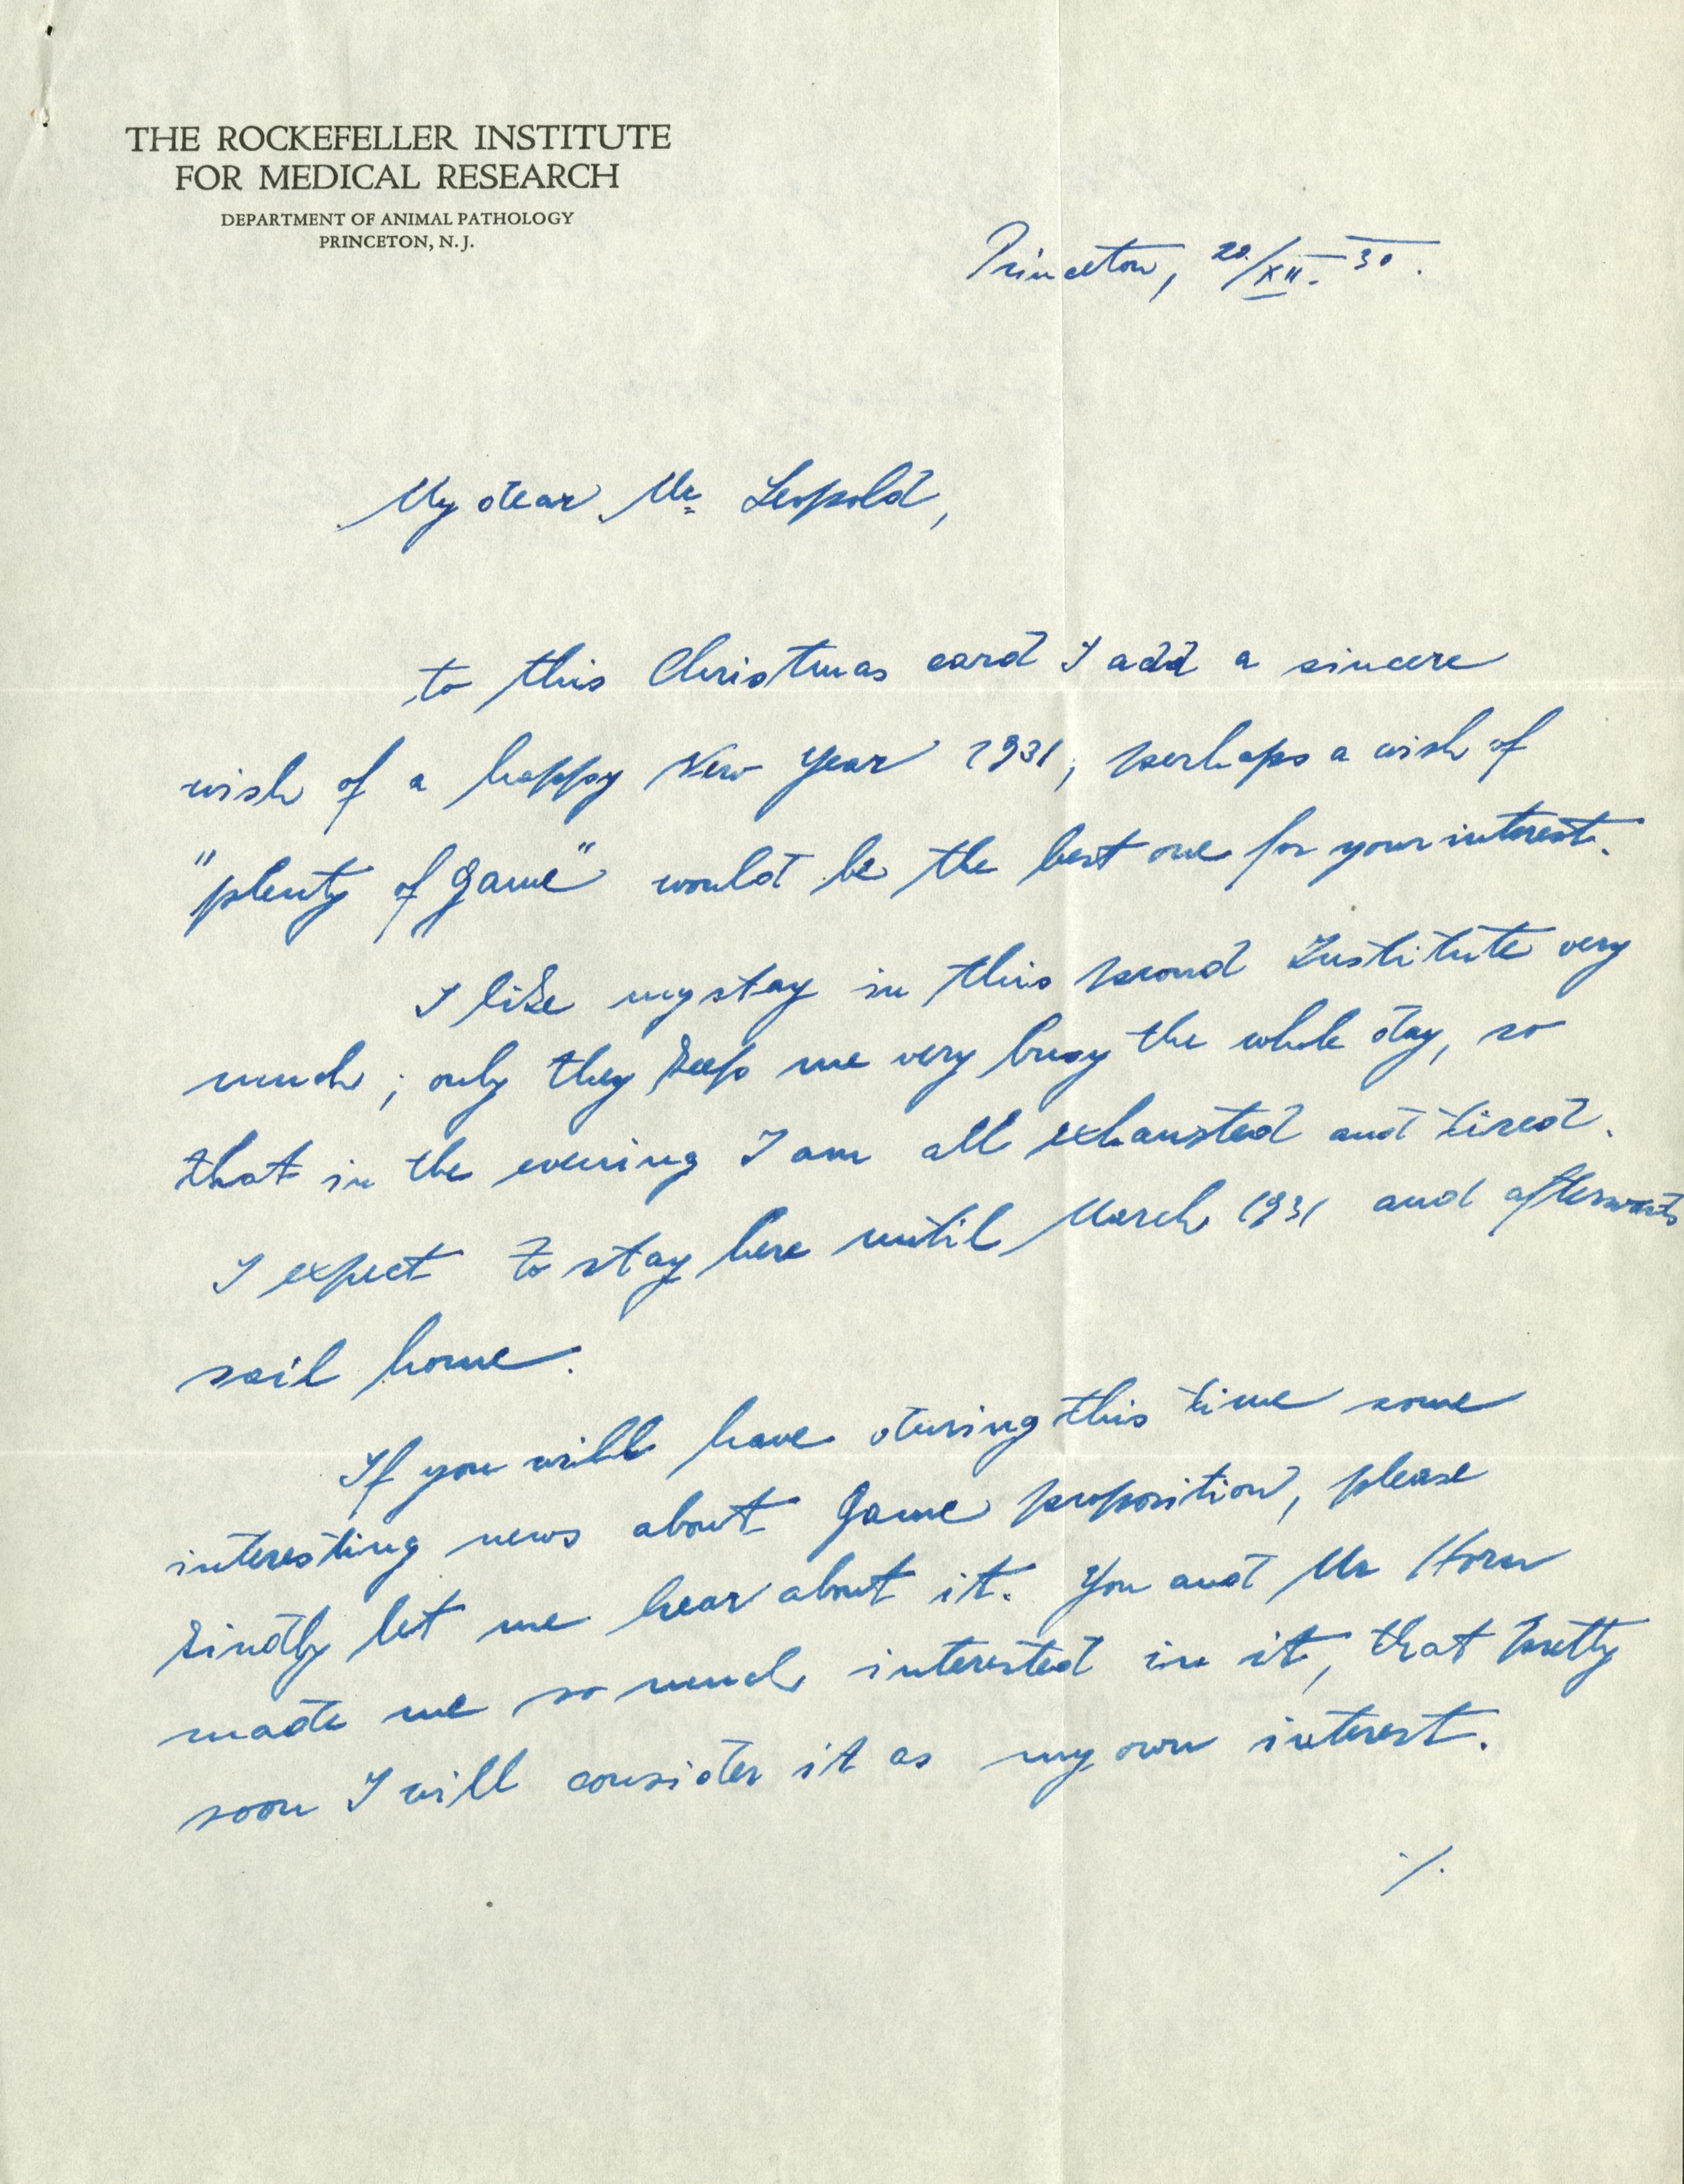 THE ROCKEFELLER INSTITUTE
FOR MEDICAL RESEARCH
DEPARTMENT OF ANIMAL PATHOLOGY
PRINCETON, N. J.
Princeton, 20/XII. 30.
My dear Mr Leopold,
to this Christmas card I add a sincere
wish of a happy New Year 1931, perhaps a wish of
"plenty of game" would be the best one for your interest.
I like my stay in this proud Institute very
much; only they keep me very busy the whole day, so
that in the evening I am all exhausted and tired.
I expect to stay here until March 1931 and afterwards
sail home.
If you will have during this time some
interesting news about Game proposition, please
kindly let me hear about it. You and Mr Horn
made me so much interested in it, that pretty
soon I will consider it as my own interest.
./.